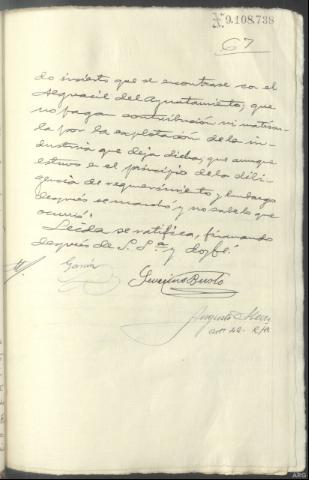 N.9.108.738
67
do incierto que se encontrase con el
Alguacil del Ayuntamiento; que
no pagan contribución ni matricu-
la por la explotación de la in-
dustria que deja dicha; que aunque
estuvo en el principio de la dili-
gencia de requerimiento y embargo
después se marchó y no sabe lo que
ocurrió.
Leida se ratifica, firmando
después de S. Sª y doy fé.
Garcia
Severino Busto
Augusto
ARG